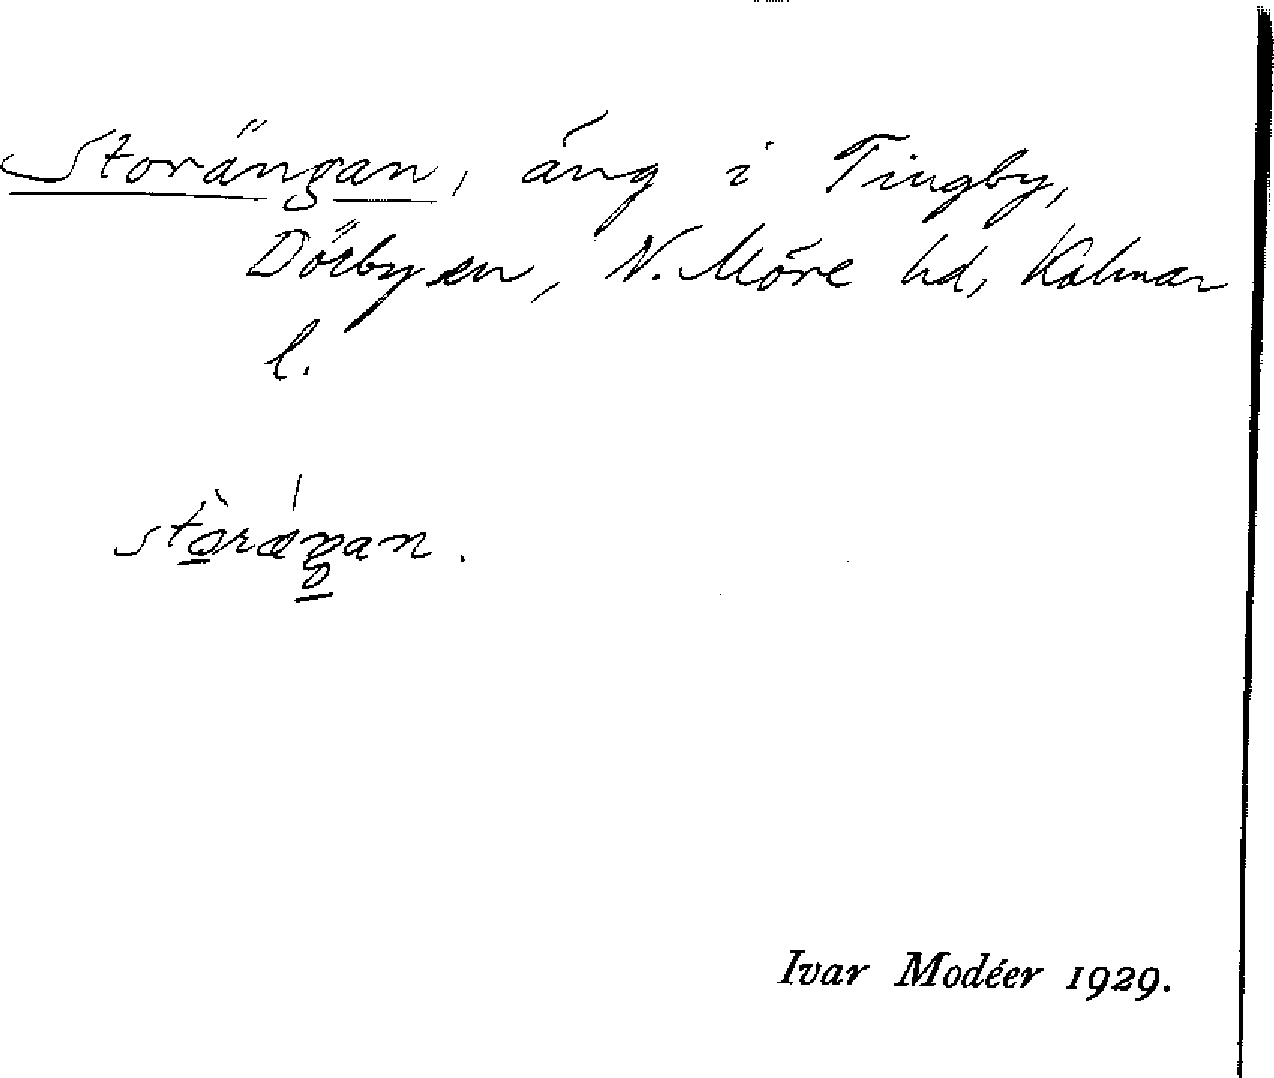 Storängan, äng i Tingby,
Dörby sn, N. Möre hd, Kalmar
l.
Ivar Modéer 1929.